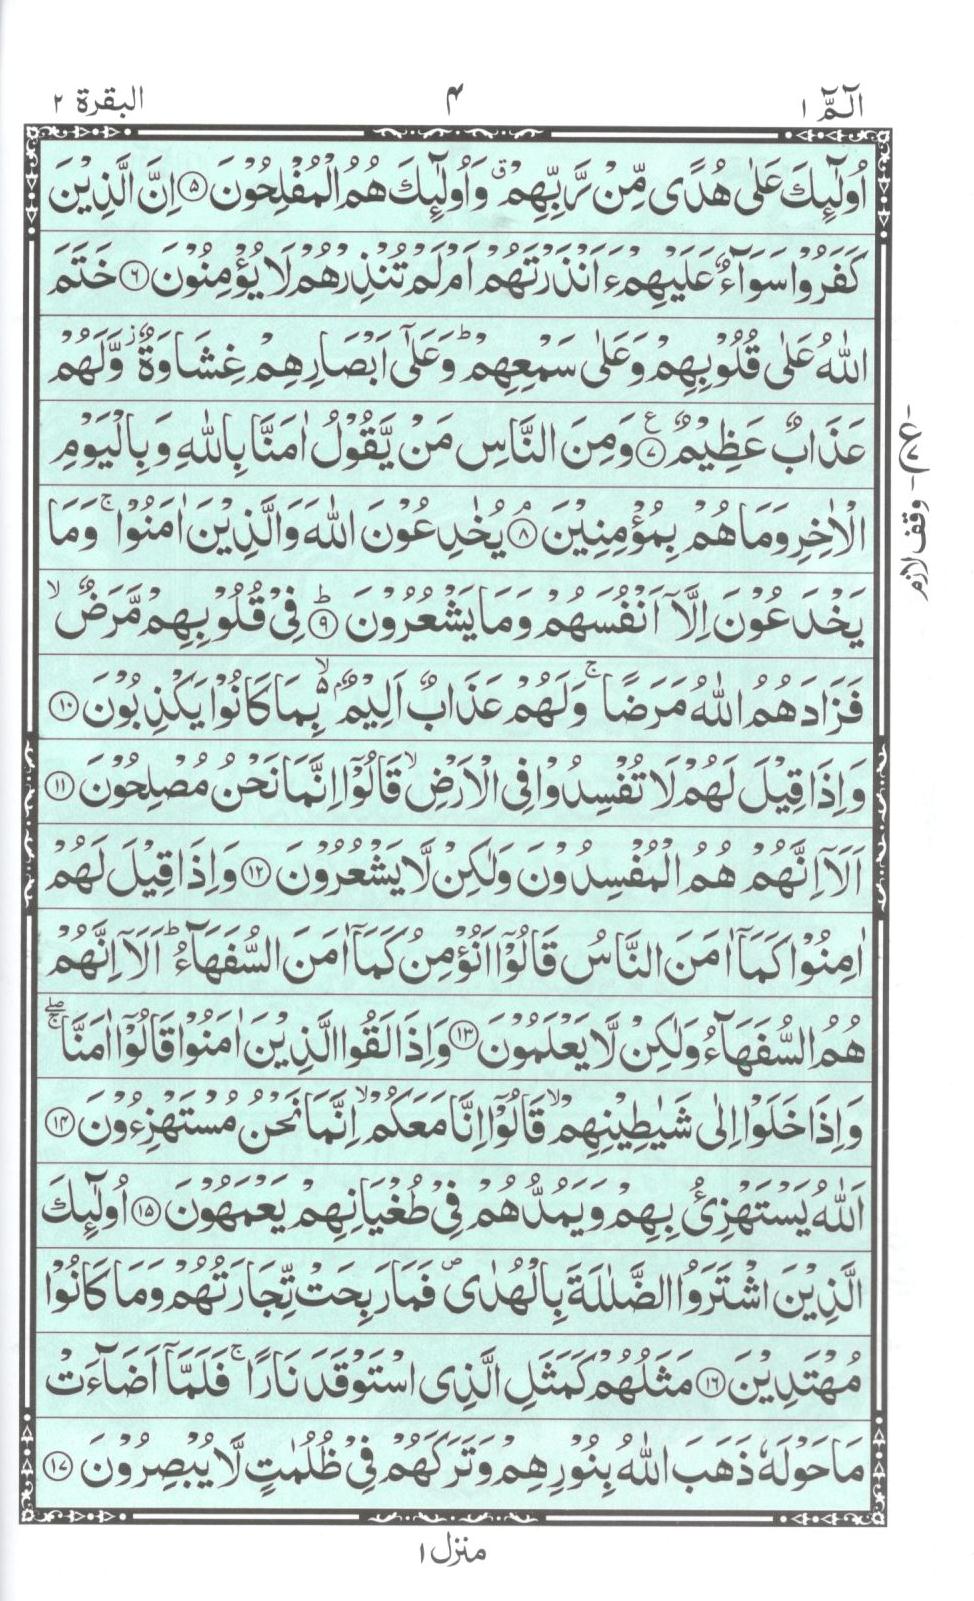 الٓمّٓ ١ ۴ البقرة ٢
اُولٰٓئِكَ عَلٰى هُدًى مِّنْ رَّبِّهِمْ ۗ وَاُولٰٓئِكَ هُمُ الْمُفْلِحُوْنَ ۝٥ اِنَّ الَّذِيْنَ
كَفَرُوْا سَوَآءٌ عَلَيْهِمْ ءَاَنْذَرْتَهُمْ اَمْ لَمْ تُنْذِرْهُمْ لَا يُؤْمِنُوْنَ ۝٦ خَتَمَ
اللّٰهُ عَلٰى قُلُوْبِهِمْ وَعَلٰى سَمْعِهِمْ ؕ وَعَلٰٓى اَبْصَارِهِمْ غِشَاوَةٌ ؗ وَّلَهُمْ
عَذَابٌ عَظِيْمٌ ۝٧ ع وَمِنَ النَّاسِ مَنْ يَّقُوْلُ اٰمَنَّا بِاللّٰهِ وَبِالْيَوْمِ
الْاٰخِرِ وَمَا هُمْ بِمُؤْمِنِيْنَ ۝٨ۘ يُخٰدِعُوْنَ اللّٰهَ وَالَّذِيْنَ اٰمَنُوْا ۚ وَمَا
يَخْدَعُوْنَ اِلَّآ اَنْفُسَهُمْ وَمَا يَشْعُرُوْنَ ۝٩ؕ فِيْ قُلُوْبِهِمْ مَّرَضٌ ۙ
فَزَادَهُمُ اللّٰهُ مَرَضًا ۚ وَلَهُمْ عَذَابٌ اَلِيْمٌۢ ۙ۬ بِمَا كَانُوْا يَكْذِبُوْنَ ۝١٠
وَاِذَا قِيْلَ لَهُمْ لَا تُفْسِدُوْا فِى الْاَرْضِ ۙ قَالُوْٓا اِنَّمَا نَحْنُ مُصْلِحُوْنَ ۝١١
اَلَآ اِنَّهُمْ هُمُ الْمُفْسِدُوْنَ وَلٰكِنْ لَّا يَشْعُرُوْنَ ۝١٢ وَاِذَا قِيْلَ لَهُمْ
اٰمِنُوْا كَمَآ اٰمَنَ النَّاسُ قَالُوْٓا اَنُؤْمِنُ كَمَآ اٰمَنَ السُّفَهَآءُ ؕ اَلَآ اِنَّهُمْ
هُمُ السُّفَهَآءُ وَلٰكِنْ لَّا يَعْلَمُوْنَ ۝١٣ وَاِذَا لَقُوا الَّذِيْنَ اٰمَنُوْا قَالُوْٓا اٰمَنَّا ۖۚ
وَاِذَا خَلَوْا اِلٰى شَيٰطِيْنِهِمْ ۙ قَالُوْٓا اِنَّا مَعَكُمْ ۙ اِنَّمَا نَحْنُ مُسْتَهْزِءُوْنَ ۝١٤
اَللّٰهُ يَسْتَهْزِئُ بِهِمْ وَيَمُدُّهُمْ فِيْ طُغْيَانِهِمْ يَعْمَهُوْنَ ۝١٥ اُولٰٓئِكَ
الَّذِيْنَ اشْتَرَوُا الضَّلٰلَةَ بِالْهُدٰى ص فَمَا رَبِحَتْ تِّجَارَتُهُمْ وَمَا كَانُوْا
مُهْتَدِيْنَ ۝١٦ مَثَلُهُمْ كَمَثَلِ الَّذِى اسْتَوْقَدَ نَارًا ۚ فَلَمَّآ اَضَآءَتْ
مَا حَوْلَهٗ ذَهَبَ اللّٰهُ بِنُوْرِهِمْ وَتَرَكَهُمْ فِيْ ظُلُمٰتٍ لَّا يُبْصِرُوْنَ ۝١٧
وقف لازم
منزل ١